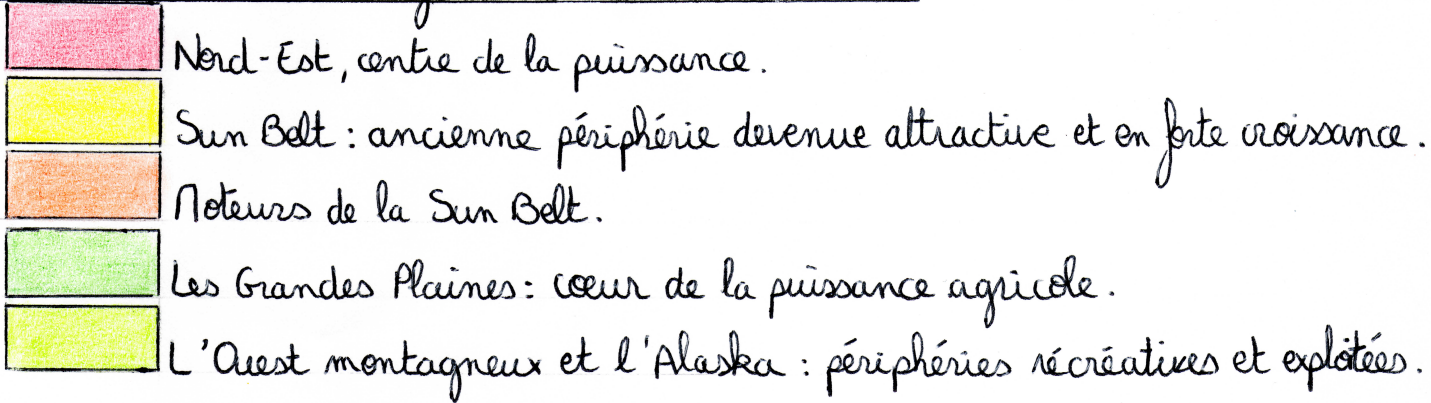 Nord-Est, centre de la puissance.
Sun Belt : ancienne périphérie devenue attractive et en forte croissance.
Moteurs de la Sun Belt.
Les Grandes Plaines : cœur de la puissance agricole.
L'Ouest montagneux et l'Alaska : périphéries récréatives et exploitées.